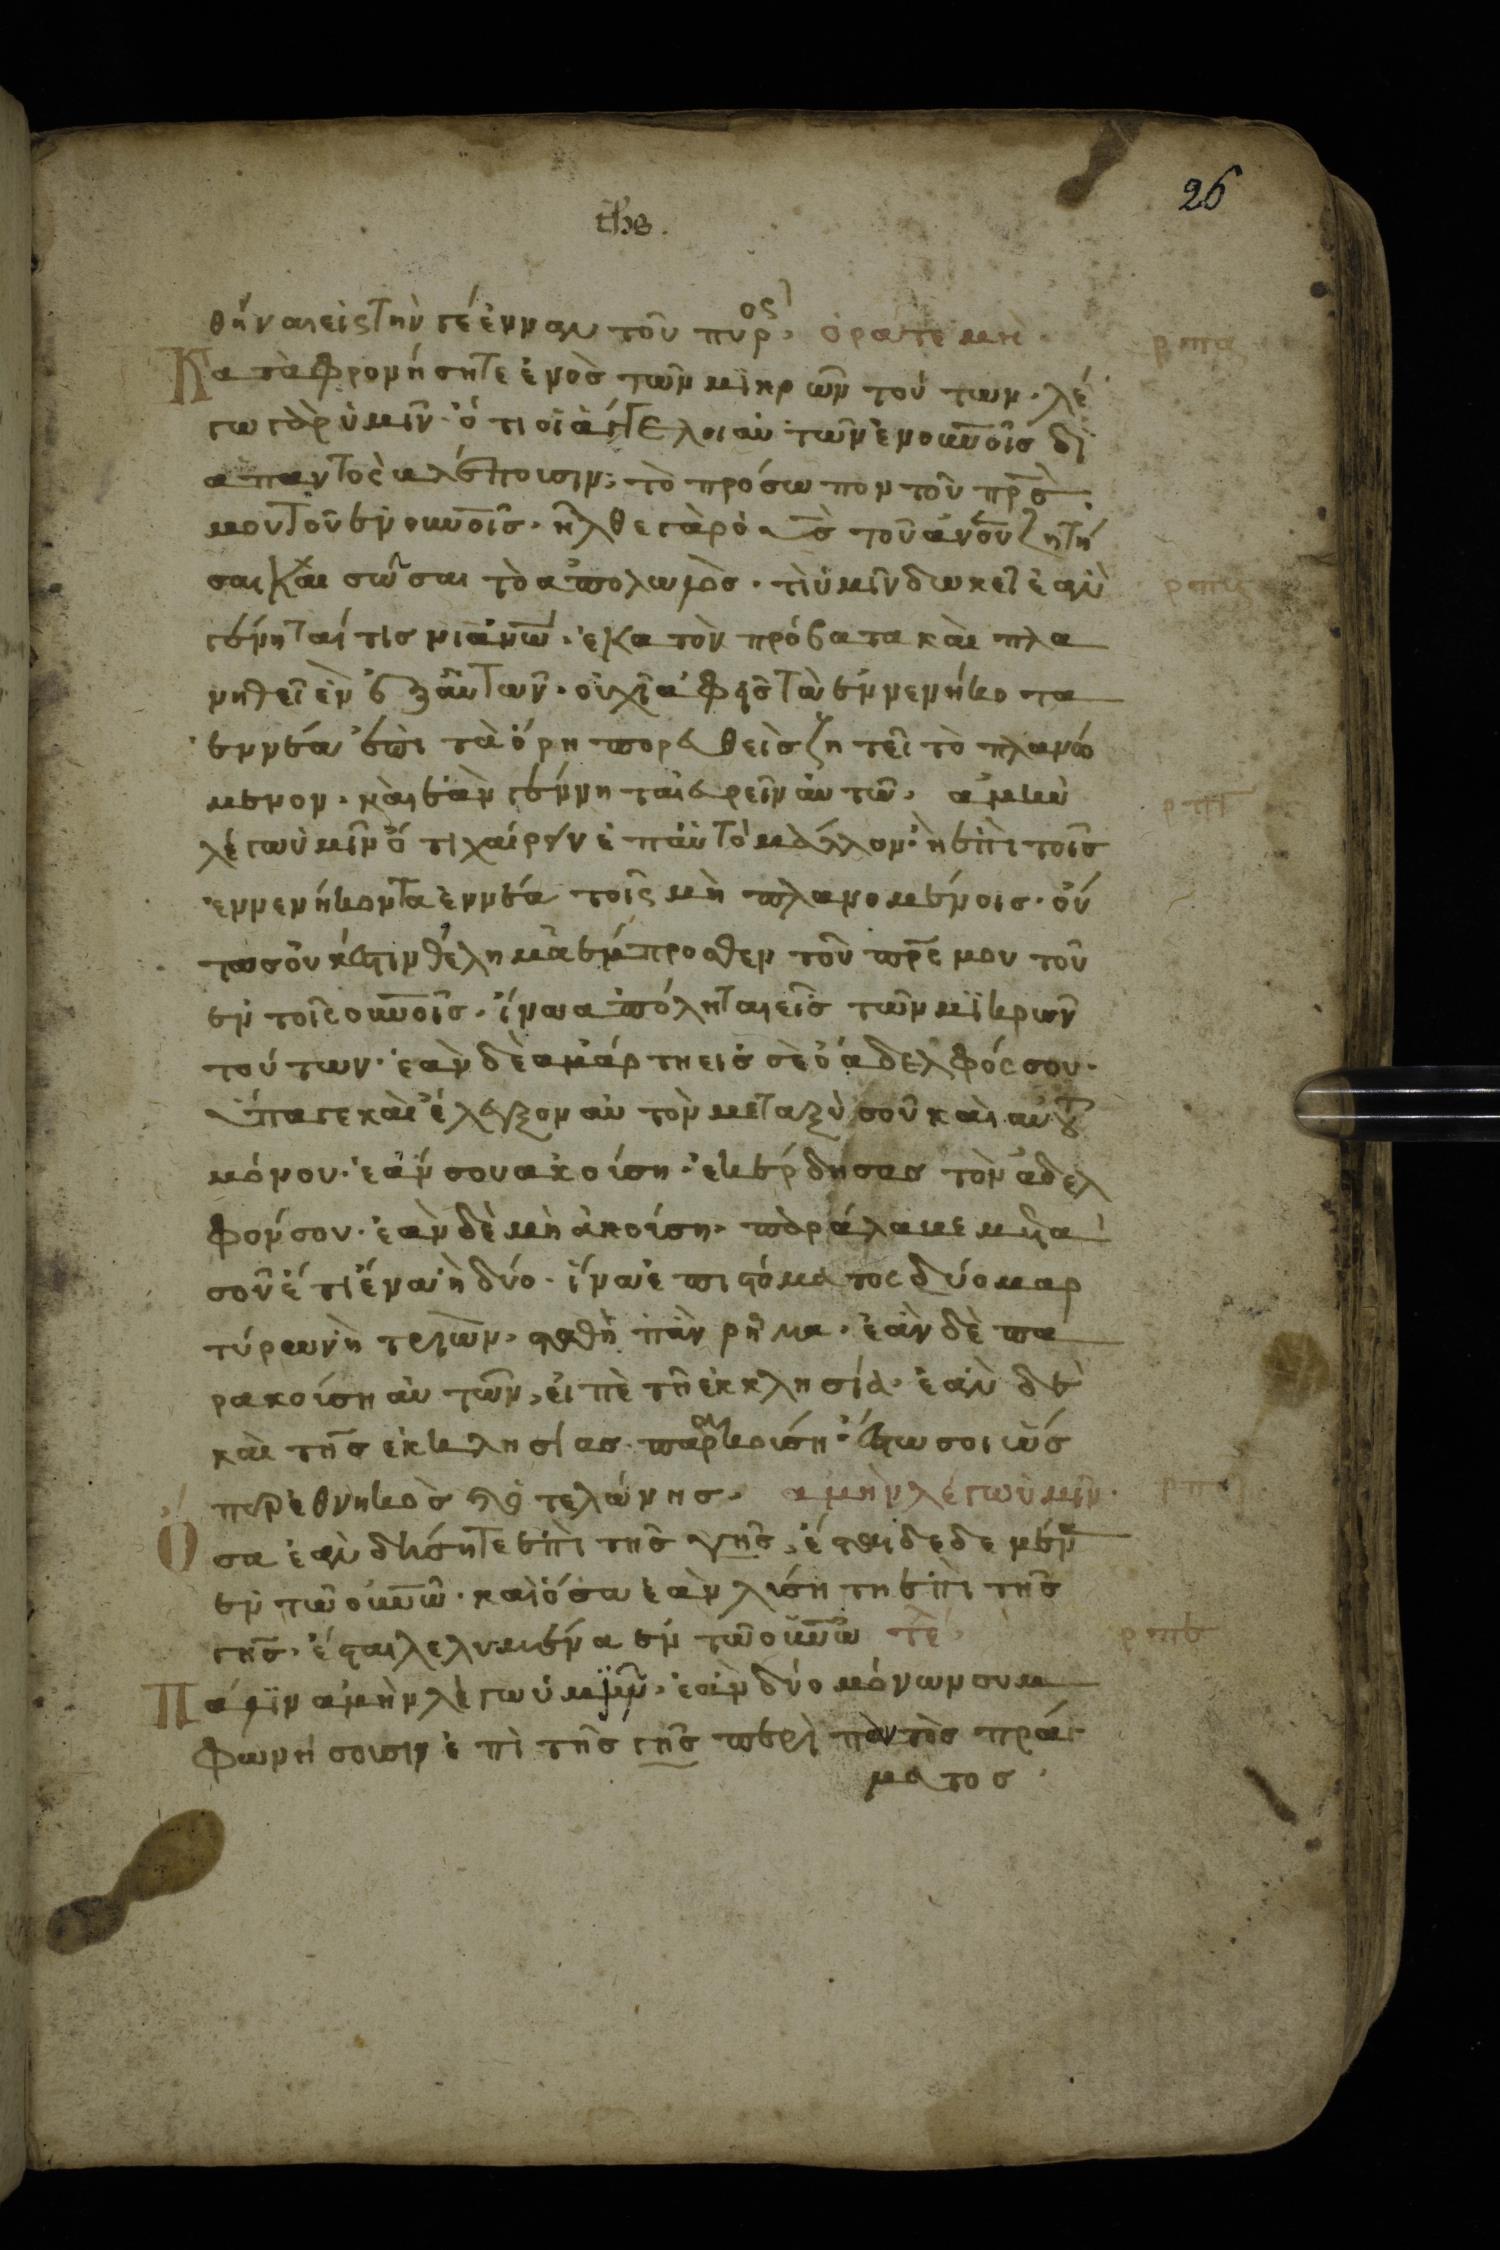 26
θήναι εἰς τὴν γέενναν τοῦ πυρος, ὁράτε μὴ
Κατὰφρονήσητε ἑνὸσ τῶν μϊκρῶν τούτων· λέ
γω γὰρ ὑμῖν· ὅτι οἱ ἄγγελοι αὐτῶν ἐν οὐνοῖσ δϊ
ἁπαντὸς βλέπουσιν; τὸ πρόσωπον τοῦ πρ̅σ
μου τοῦ ἐν οὐνοῖσ· ἦλθε γὰρ ὁ υσ τοῦ ἀνου ζητή
σαι καὶ σῶσαι τὸ ἀπολωλὸσ· τὶ ὑμῖν δωκεῖ ἐὰν
γένηταί τισ ἀνω· ἑκατὸν πρόβατα καὶ πλα
νηθεῖ ἐν ἐξ αὐτῶν· οὐχῒ ἀφεὶσ τὰ ἐννενήκοτα
ἐννέα ἐπι τὰ ὄρη πορευθεὶσ ζητεῖ τὸ πλανώ
μενον· καὶ ἐὰν γένηται εὑρεῖν αὐτῶ· ἀμὴν
λέγω ὑμῖν ὅτι χαίρειν ἐπαὐτὸ μᾶλλον· ἢ ἐπὶ τοῖσ
ἐννενήκοντα ἐννέα τοῖς μὴ πλανομένοισ· οὕ
τωσ οὐκ ἔστιν θέλημα ἔμπροσθεν τοῦ πρς μου τοῦ
ἐν τοῖς οὐνοῖσ· ἵνα ἀπόληται εἷσ τῶν μϊκρῶν
τούτων· ἐὰν δὲ ἁμάρτη εἰσ σὲ ὁ ἀδελφός σου·
ὕπαγε καὶ ἔλεγξον αὐτὸν μεταξὺ σοῦ καὶ αὐτοῦ
μόνου· ἐάν σου ἀκοίση· ἐκέρδησασ τὸν ἀδελ
φόν σου· ἐὰν δὲ μὴ ἀκοίση· παράλαβε μετὰ
σοῦ ἔτι ἕνα ἢ δύο· ἵνα ἐπι στόματος δύο μαρ
τύρων ἢ τριῶν· σταθῆ πὰν ρῆμα· ἐὰν δὲ πα
ρακοίση αὐτῶν, εἰπὲ τῆ ἐκκλησία· ἐὰν δὲ
καὶ τῆσ ἐκκλησίασ παρακοίση· ἔστω σοι ὥσ
περ ἐθνηκὸσ καὶ τελώνησ· ἀμὴν λέγω ὑμῖν·
Ὅσα ἐὰν δήσητε ἐπὶ τῆσ γῆσ, ἔσται δεδεμέν
ἐν τῶ οὐνῶ· καὶ ὅσα ἐὰν λύσητη ἐπὶ τῆσ
γῆσ· ἔσται λελυμένα ἐν τῶ οὐνῶ τέ
Πάλιν ἀμὴν λέγω ὑμῖν· ἐὰν δύο μόνων συμ
φωνήσουσιν ἐπὶ τῆσ γῆσ περὶ παντὸσ πράγ
ματοσ·
ρπα
ρπγ
ρπε